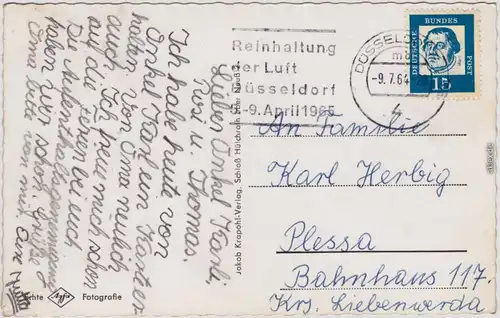 DEUTSCHE
BUNDES
POST
15
DÜSSELDORF
-9.7.64
Reinhaltung
der Luft
Düsseldorf
-9. April 1965
Lieber Onkel Karli,
Rosi u. Thomas.
Ich habe heute von
Onkel Karl ein Karte er
halten von Oma neulich
auch. Ich freue mich schon
auf die Ferien bei euch
Die Aufenthaltsgenehmigung
haben wir schon. Grüße
Oma bitte von mir. Eure
Jakob Krapohl-Verlag, Schloß Hülchrath über Neuß
An Familie
Karl Herbig
Plessa
Bahnhaus 117.
Krs. Liebenwerda
Echte Agfa Fotografie